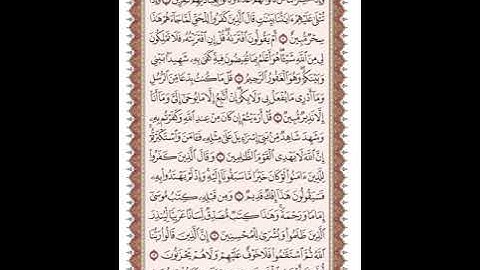 تُتْلَىٰ عَلَيْهِمْ ءَايَٰتُنَا بَيِّنَٰتٍ قَالَ ٱلَّذِينَ كَفَرُوا۟ لِلْحَقِّ لَمَّا جَآءَهُمْ هَٰذَا
سِحْرٌ مُّبِينٌ ۝٧ أَمْ يَقُولُونَ ٱفْتَرَىٰهُ قُلْ إِنِ ٱفْتَرَيْتُهُۥ فَلَا تَمْلِكُونَ
لِى مِنَ ٱللَّهِ شَيْـًٔا هُوَ أَعْلَمُ بِمَا تُفِيضُونَ فِيهِ كَفَىٰ بِهِۦ شَهِيدًۢا بَيْنِى
وَبَيْنَكُمْ وَهُوَ ٱلْغَفُورُ ٱلرَّحِيمُ ۝٨ قُلْ مَا كُنتُ بِدْعًا مِّنَ ٱلرُّسُلِ
وَمَآ أَدْرِى مَا يُفْعَلُ بِى وَلَا بِكُمْ إِنْ أَتَّبِعُ إِلَّا مَا يُوحَىٰٓ إِلَىَّ وَمَآ أَنَا۠
إِلَّا نَذِيرٌ مُّبِينٌ ۝٩ قُلْ أَرَءَيْتُمْ إِن كَانَ مِنْ عِندِ ٱللَّهِ وَكَفَرْتُم بِهِۦ
وَشَهِدَ شَاهِدٌ مِّنۢ بَنِىٓ إِسْرَٰٓءِيلَ عَلَىٰ مِثْلِهِۦ فَـَٔامَنَ وَٱسْتَكْبَرْتُمْ
إِنَّ ٱللَّهَ لَا يَهْدِى ٱلْقَوْمَ ٱلظَّٰلِمِينَ ۝١٠ وَقَالَ ٱلَّذِينَ كَفَرُوا۟
لِلَّذِينَ ءَامَنُوا۟ لَوْ كَانَ خَيْرًا مَّا سَبَقُونَآ إِلَيْهِ وَإِذْ لَمْ يَهْتَدُوا۟ بِهِۦ
فَسَيَقُولُونَ هَٰذَآ إِفْكٌ قَدِيمٌ ۝١١ وَمِن قَبْلِهِۦ كِتَٰبُ مُوسَىٰٓ
إِمَامًا وَرَحْمَةً وَهَٰذَا كِتَٰبٌ مُّصَدِّقٌ لِّسَانًا عَرَبِيًّا لِّيُنذِرَ
ٱلَّذِينَ ظَلَمُوا۟ وَبُشْرَىٰ لِلْمُحْسِنِينَ ۝١٢ إِنَّ ٱلَّذِينَ قَالُوا۟ رَبُّنَا
ٱللَّهُ ثُمَّ ٱسْتَقَٰمُوا۟ فَلَا خَوْفٌ عَلَيْهِمْ وَلَا هُمْ يَحْزَنُونَ ۝١٣